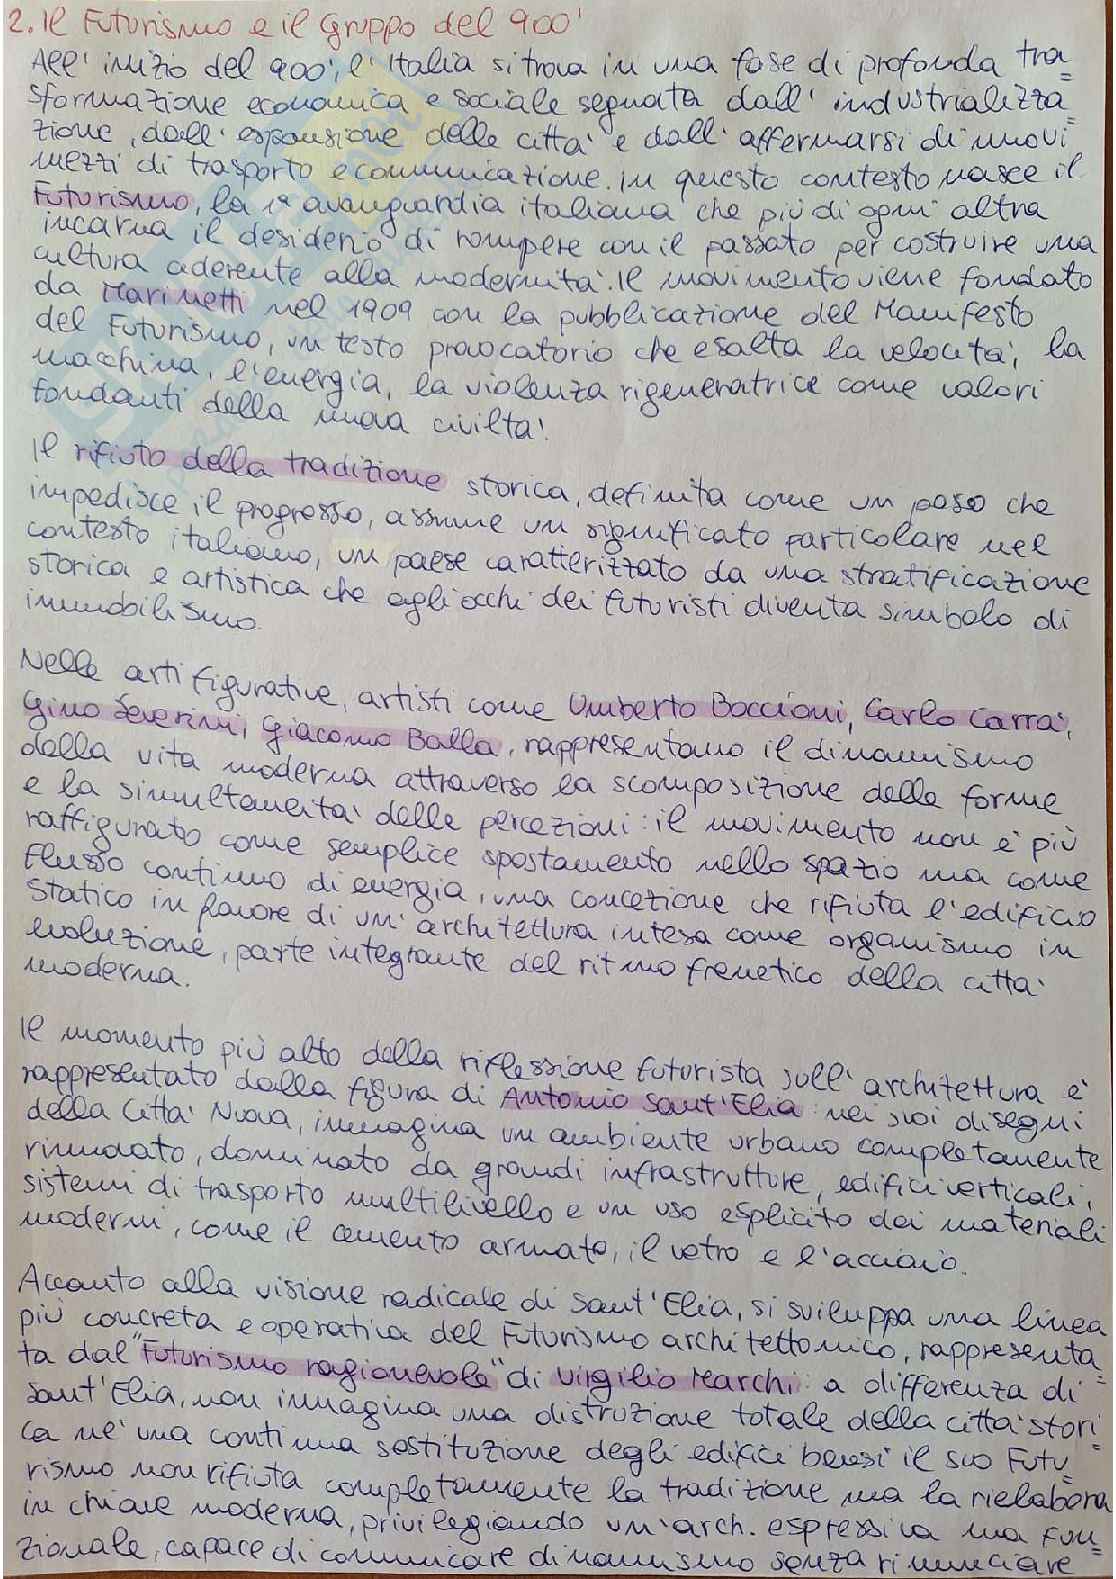 2. Il Futurismo e il Gruppo del 900'
All' inizio del 900', l' Italia si trova in una fase di profonda tra=
sformazione economica e sociale segnata dall' industrializza=
zione, dall' espansione delle città e dall' affermarsi di nuovi
mezzi di trasporto e comunicazione. In questo contesto nasce il
Futurismo, la 1ª avanguardia italiana che più di ogni altra
incarna il desiderio di rompere con il passato per costruire una
cultura aderente alla modernità. Il movimento viene fondato
da Marinetti nel 1909 con la pubblicazione del Manifesto
del Futurismo, un testo provocatorio che esalta la velocità, la
macchina, l'energia, la violenza rigeneratrice come valori
fondanti della nuova civiltà.
Il rifiuto della tradizione storica, definita come un peso che
impedisce il progresso, assume un significato particolare nel
contesto italiano, un paese caratterizzato da una stratificazione
storica e artistica che agli occhi dei futuristi diventa simbolo di
immobilismo.
Nelle arti figurative, artisti come Umberto Boccioni, Carlo Carrà,
Gino Severini, Giacomo Balla, rappresentano il dinamismo
della vita moderna attraverso la scomposizione delle forme
e la simultaneità delle percezioni: il movimento non è più
raffigurato come semplice spostamento nello spazio ma come
flusso continuo di energia, una concezione che rifiuta l'edificio
statico in favore di un'architettura intesa come organismo in
evoluzione, parte integrante del ritmo frenetico della città
moderna.
Il momento più alto della riflessione futurista sull' architettura è
rappresentato dalla figura di Antonio Sant'Elia: nei suoi disegni
della Città Nuova, immagina un ambiente urbano completamente
rinnovato, dominato da grandi infrastrutture, edifici verticali,
sistemi di trasporto multilivello e un uso esplicito dei materiali
moderni, come il cemento armato, il vetro e l'acciaio.
Accanto alla visione radicale di Sant'Elia, si sviluppa una linea
più concreta e operativa del Futurismo architettonico, rappresenta=
ta dal "Futurismo ragionevole" di Virgilio Marchi: a differenza di
Sant'Elia, non immagina una distruzione totale della città stori=
ca nè una continua sostituzione degli edifici bensì il suo Futu=
rismo non rifiuta completamente la tradizione ma la rielabora
in chiave moderna, privilegiando un'arch. espressiva ma fun=
zionale, capace di comunicare dinamismo senza rinunciare